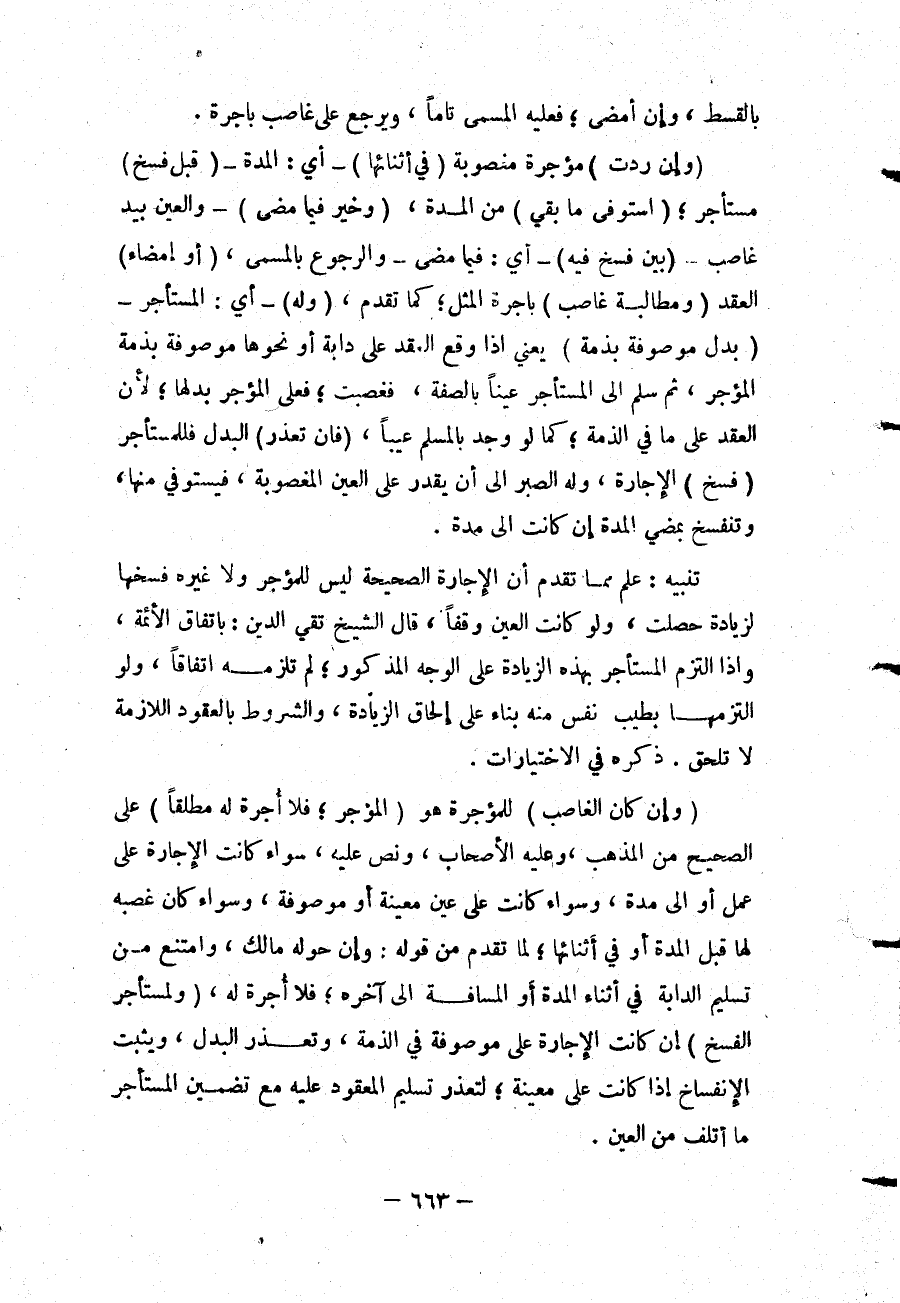 بالقسط ، وإن أمضى ؛ فعليه المسمى تاماً ، ويرجع على غاصب باجرة .
(وإن ردت ) مؤجرة منصوبة ( في أثنائها ) ــ أي : المدة ــ ( قبل فسخ )
مستأجر ؛ ( استوفى ما بقي ) من المــدة ، ( وخير فيما مضى ) ــ والعين بيد
غاصب ــ (بين فسخ فيه) ــ أي : فيما مضى ــ والرجوع بالمسمى ، ( أو إمضاء)
العقد ( ومطالبــة غاصب ) باجرة المثل؛ كما تقدم ، ( وله) ــ أي : المستأجر ــ
( بدل موصوفة بذمة ) يعني اذا وقع العقد على دابة أو نحوها موصوفة بذمة
المؤجر ، ثم سلم الى المستأجر عيناً بالصفة ، فغصبت ؛ فعلى المؤجر بدلها ؛ لأن
العقد على ما في الذمة ؛ كما لو وجد بالمسلم عيباً ، (فان تعذر) البدل فللمستأجر
( فسخ ) الإجارة ، وله الصبر الى أن يقدر على العين المغصوبة ، فيستوفي منها،
وتنفسخ بمضي المدة إن كانت الى مدة .
تنبيه : علم ممـا تقدم أن الإجارة الصحيحة ليس للمؤجر ولا غيره فسخها
لزيادة حصلت ، ولو كانت العين وقفاً ، قال الشيخ تقي الدين : باتفاق الأئمة ،
واذا التزم المستأجر بهذه الزيادة على الوجه المذكور ؛ لم تلزمــــه اتفاقاً ، ولو
التزمهــــا بطيب نفس منه بناء على إلحاق الزيادة ، والشروط بالعقود اللازمة
لا تلحق . ذكره في الاختيارات .
( وإن كان الغاصب ) للمؤجرة هو ( المؤجر ؛ فلا أُجرة له مطلقاً ) على
الصحيح من المذهب ،وعليه الأصحاب ، ونص عليه ، سواء كانت الإجارة على
عمل أو الى مدة ، وسواء كانت على عين معينة أو موصوفة ، وسواء كان غصبه
لها قبل المدة أو في أثنائها ؛ لما تقدم من قوله : وإن حوله مالك ، وامتنع مـن
تسليم الدابة في أثناء المدة أو المسافـــة الى آخره ؛ فلا أُجرة له ، ( ولمستأجر
الفسخ ) إن كانت الإجارة على موصوفة في الذمة ، وتعــــذر البدل ، ويثبت
الإنفساخ إذا كانت على معينة ؛ لتعذر تسليم المعقود عليه مع تضمــين المستأجر
ما أتلف من العين .
ــ ٦٦٣ ــ